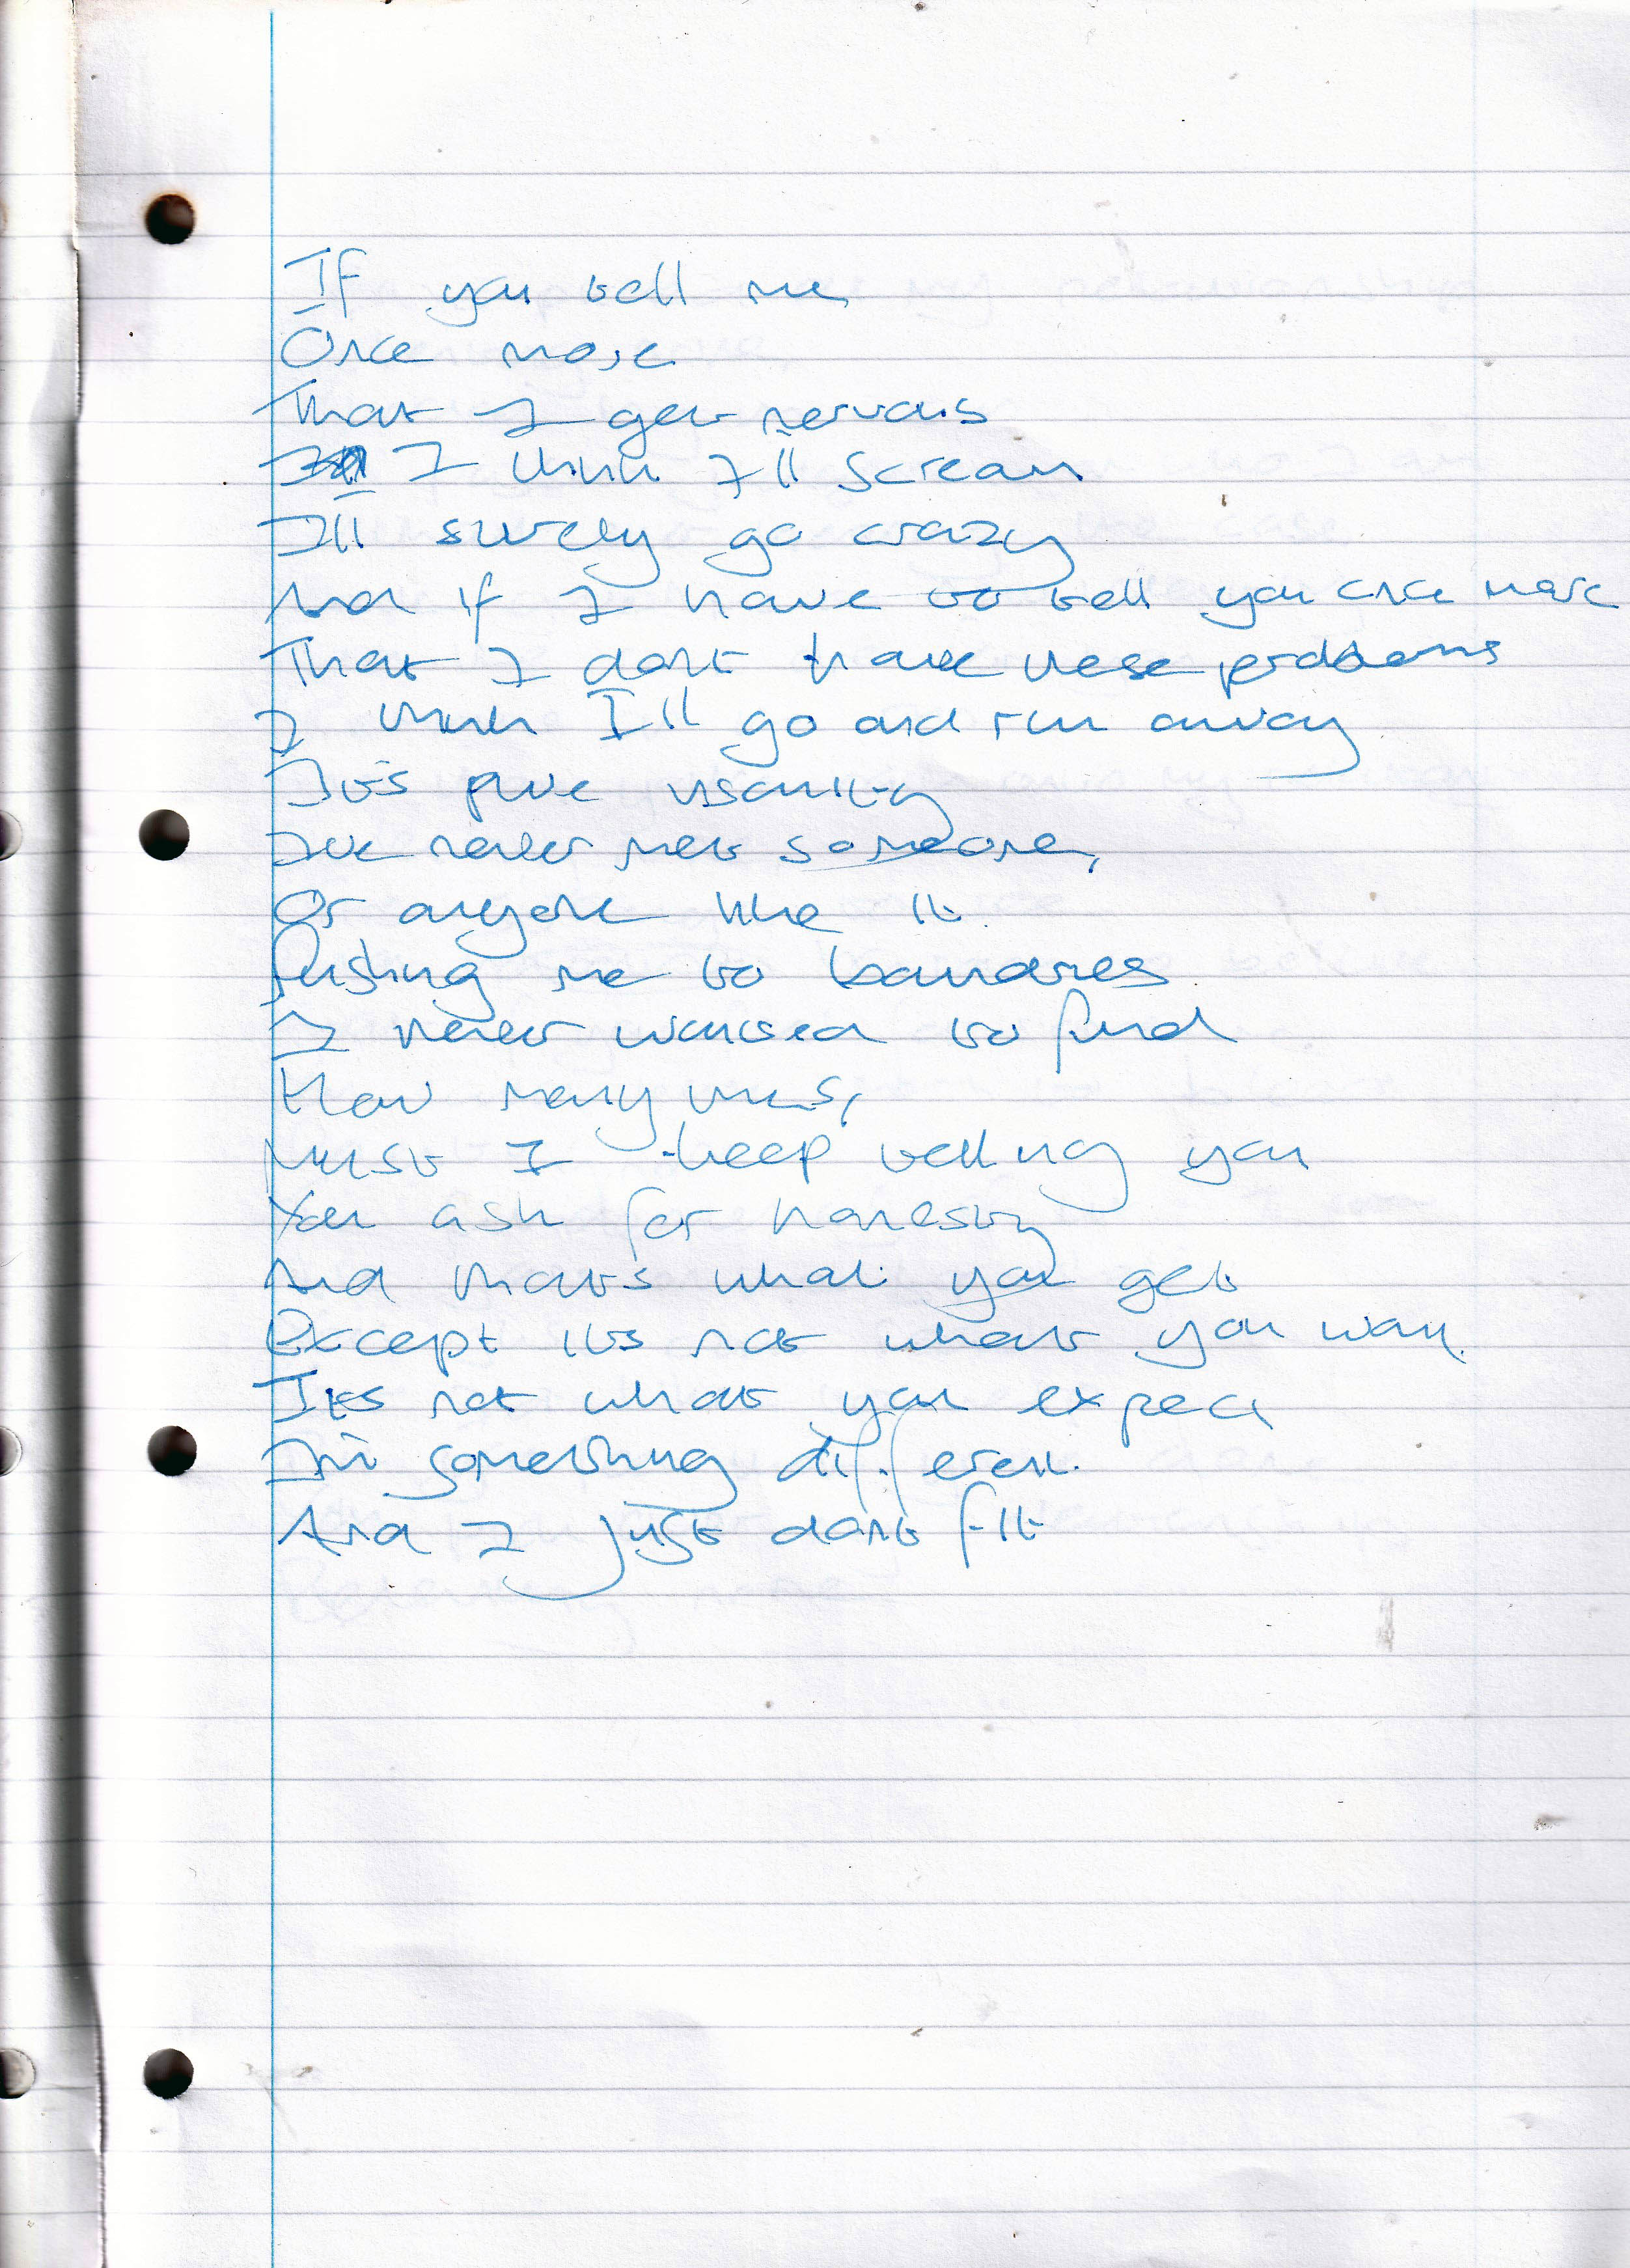 If you tell me
Once more
That I get nervous
I think I'll scream
I'll surely go crazy
And if I have to tell you once more
That I dont have these problems
I think I'll go and run away
Its pure insanity
Ive never met someone,
Or anyone like it
Pushing me to boundries
I never wanted to find
How many times,
Must I keep telling you
You ask for honesty
And thats what you get
Except its not what you want
Its not what you expect
Im something different
And I just dont fit